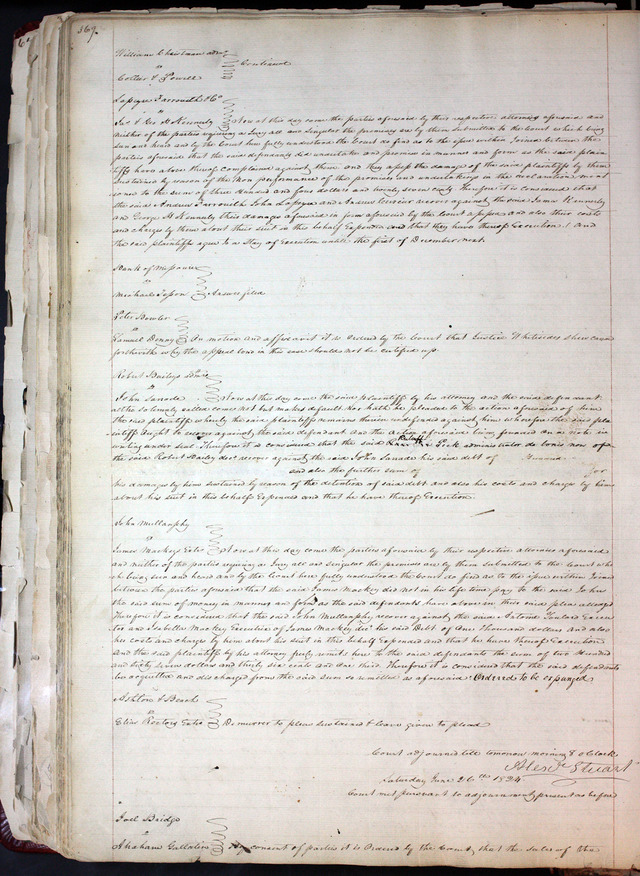 369.
William Christman admr
vs
Continued
Collier & Powell
Lapique Farrouilh & Co
vs
Jas & Geo H Kennerly Now at this day come the parties aforesaid by their respective attorneys aforesaid and
neither of the parties requiring a Jury all and singular the premises are by them submitted to the Court which being
seen and heard and by the Court here fully understood the Court do find as to the issue within Joined between the
parties aforesaid that the said defendants did undertake and promise in manner and form as the said plain-
tiffs have above thereof complained against them and they assess the damage of the said plaintiffs by them
sustained by reason of the non performance of the promises and undertakings in the declaration ment
ioned to the sum of three hundred and four dollars and twenty seven cents Therefore it is considered that
the said Andrew Farrouilh John Lapique and recover against the said James Kennerly
and George H Kennerly their damages aforesaid in form aforesaid by the Court assessed and also their costs
and charges by them about their suit in this behalf Expended and that they have thereof Execution &c And
the said plaintiffs agree to a Stay of Execution until the first of December next.
Bank of Missouri
vs
Michael Tesson Answer filed
Peter Bowler
vs
Samuel Denny On motion and affidavit it is Ordered by the Court that Justice Whitesides shew cause
forthwith why the appeal bond in this case should not be certified up
Robert Baileys admr
vs
John Sarade Now at this day come the said plaintiff by his attorney and the said defendant
altho solemnly called comes not but makes default nor hath he pleaded to the action aforesaid of him
the said plaintiff whereby the said plaintiff remains therein undefended against him wherefore the said pla-
intiff ought to recover against the said defendant and the action aforesaid being founded on an instrument of
writing under seal Therefore it is considered that the said Ruluff Peck administrator de bonis non of
the said Robert Bailey decd recover against the said John Sarade his said debt of Hundred
and also the further sum of for
his damages by him sustained by reason of the detention of said debt and also his costs and charges by him
about his suit in this behalf Expended and that he have thereof Execution.
John Mullanphy
vs
James Mackeys Extrs Now at this day come the parties aforesaid by their respective attorneys aforesaid
and neither of the parties requiring a Jury all and singular the premises are by them submitted to the Court whi
ch being seen and heard and by the Court here fully understood the Court do find as to the issue within Joined
between the parties aforesaid that the said James Mackey did not in his life time pay to the said John
the said sum of money in manner and form as the said defendants have above in their said pleas alledged
Therefore it is considered that the said John Mullanphy recover against the said Antoine Soulard Execu
tor and Isabella Mackey Executrix of James Mackey decd the said Debt of One Thousand dollars and also
his costs and charges by him about his suit in this behalf Expended and that he have thereof Execution
and the said plaintiff by his attorney freely remits here to the said defendants the sum of two Hundred
and thirty seven dollars and thirty six cents and one third. Therefore it is considered that the said defendants
be acquitted and discharged from the said sum so remitted as aforesaid Ordered to be expunged
Ashton & Beach
vs
Elias Rectors Extrs Demurrer to pleas sustained & leave given to plead
Court adjourned till tomorrow morning 8 oClock
Alexr Stuart
Saturday June 26th 1824
Court met pursuant to adjournment present as before
Joel Bridge
vs
Abraham Gallatin By consent of parties it is Ordered by the Court that the suter of the